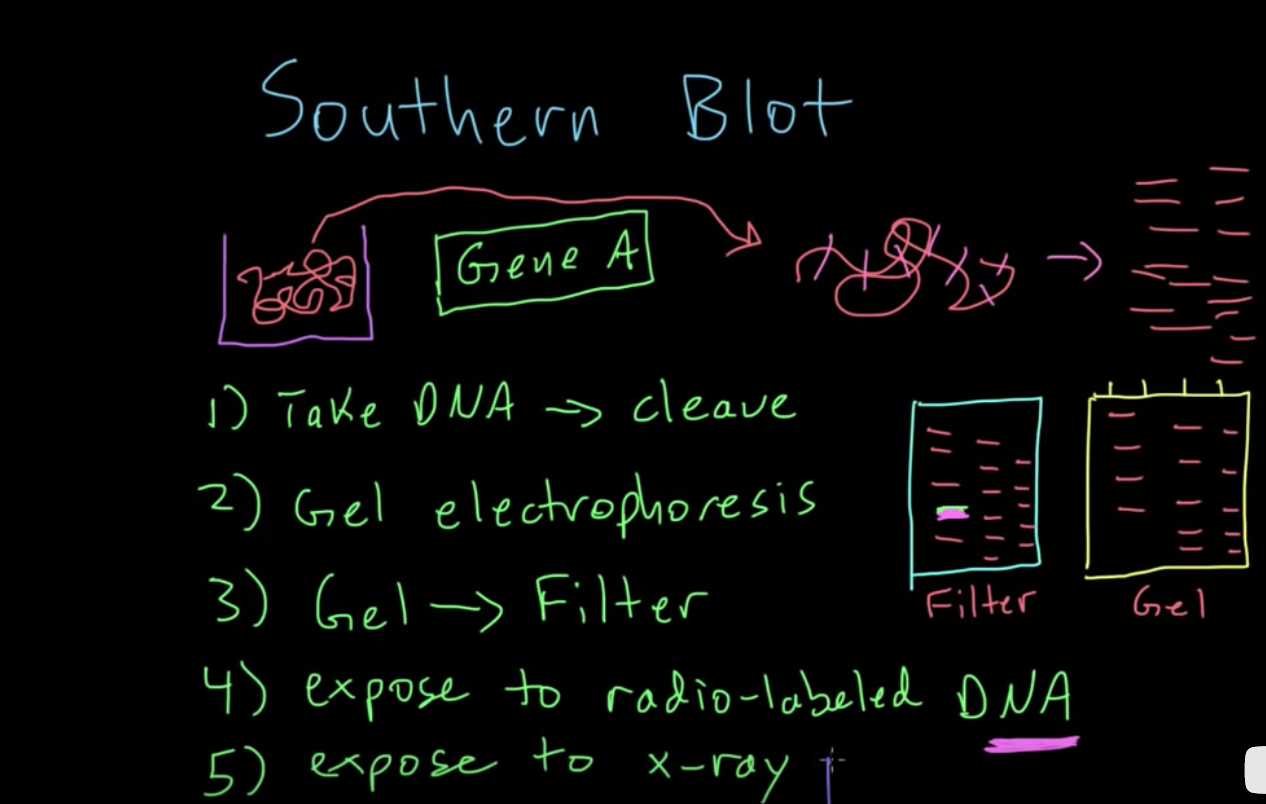 Southern Blot
Gene A
1) Take DNA → cleave
2) Gel electrophoresis
3) Gel → Filter
Filter
Gel
4) expose to radio-labeled DNA
5) expose to x-ray